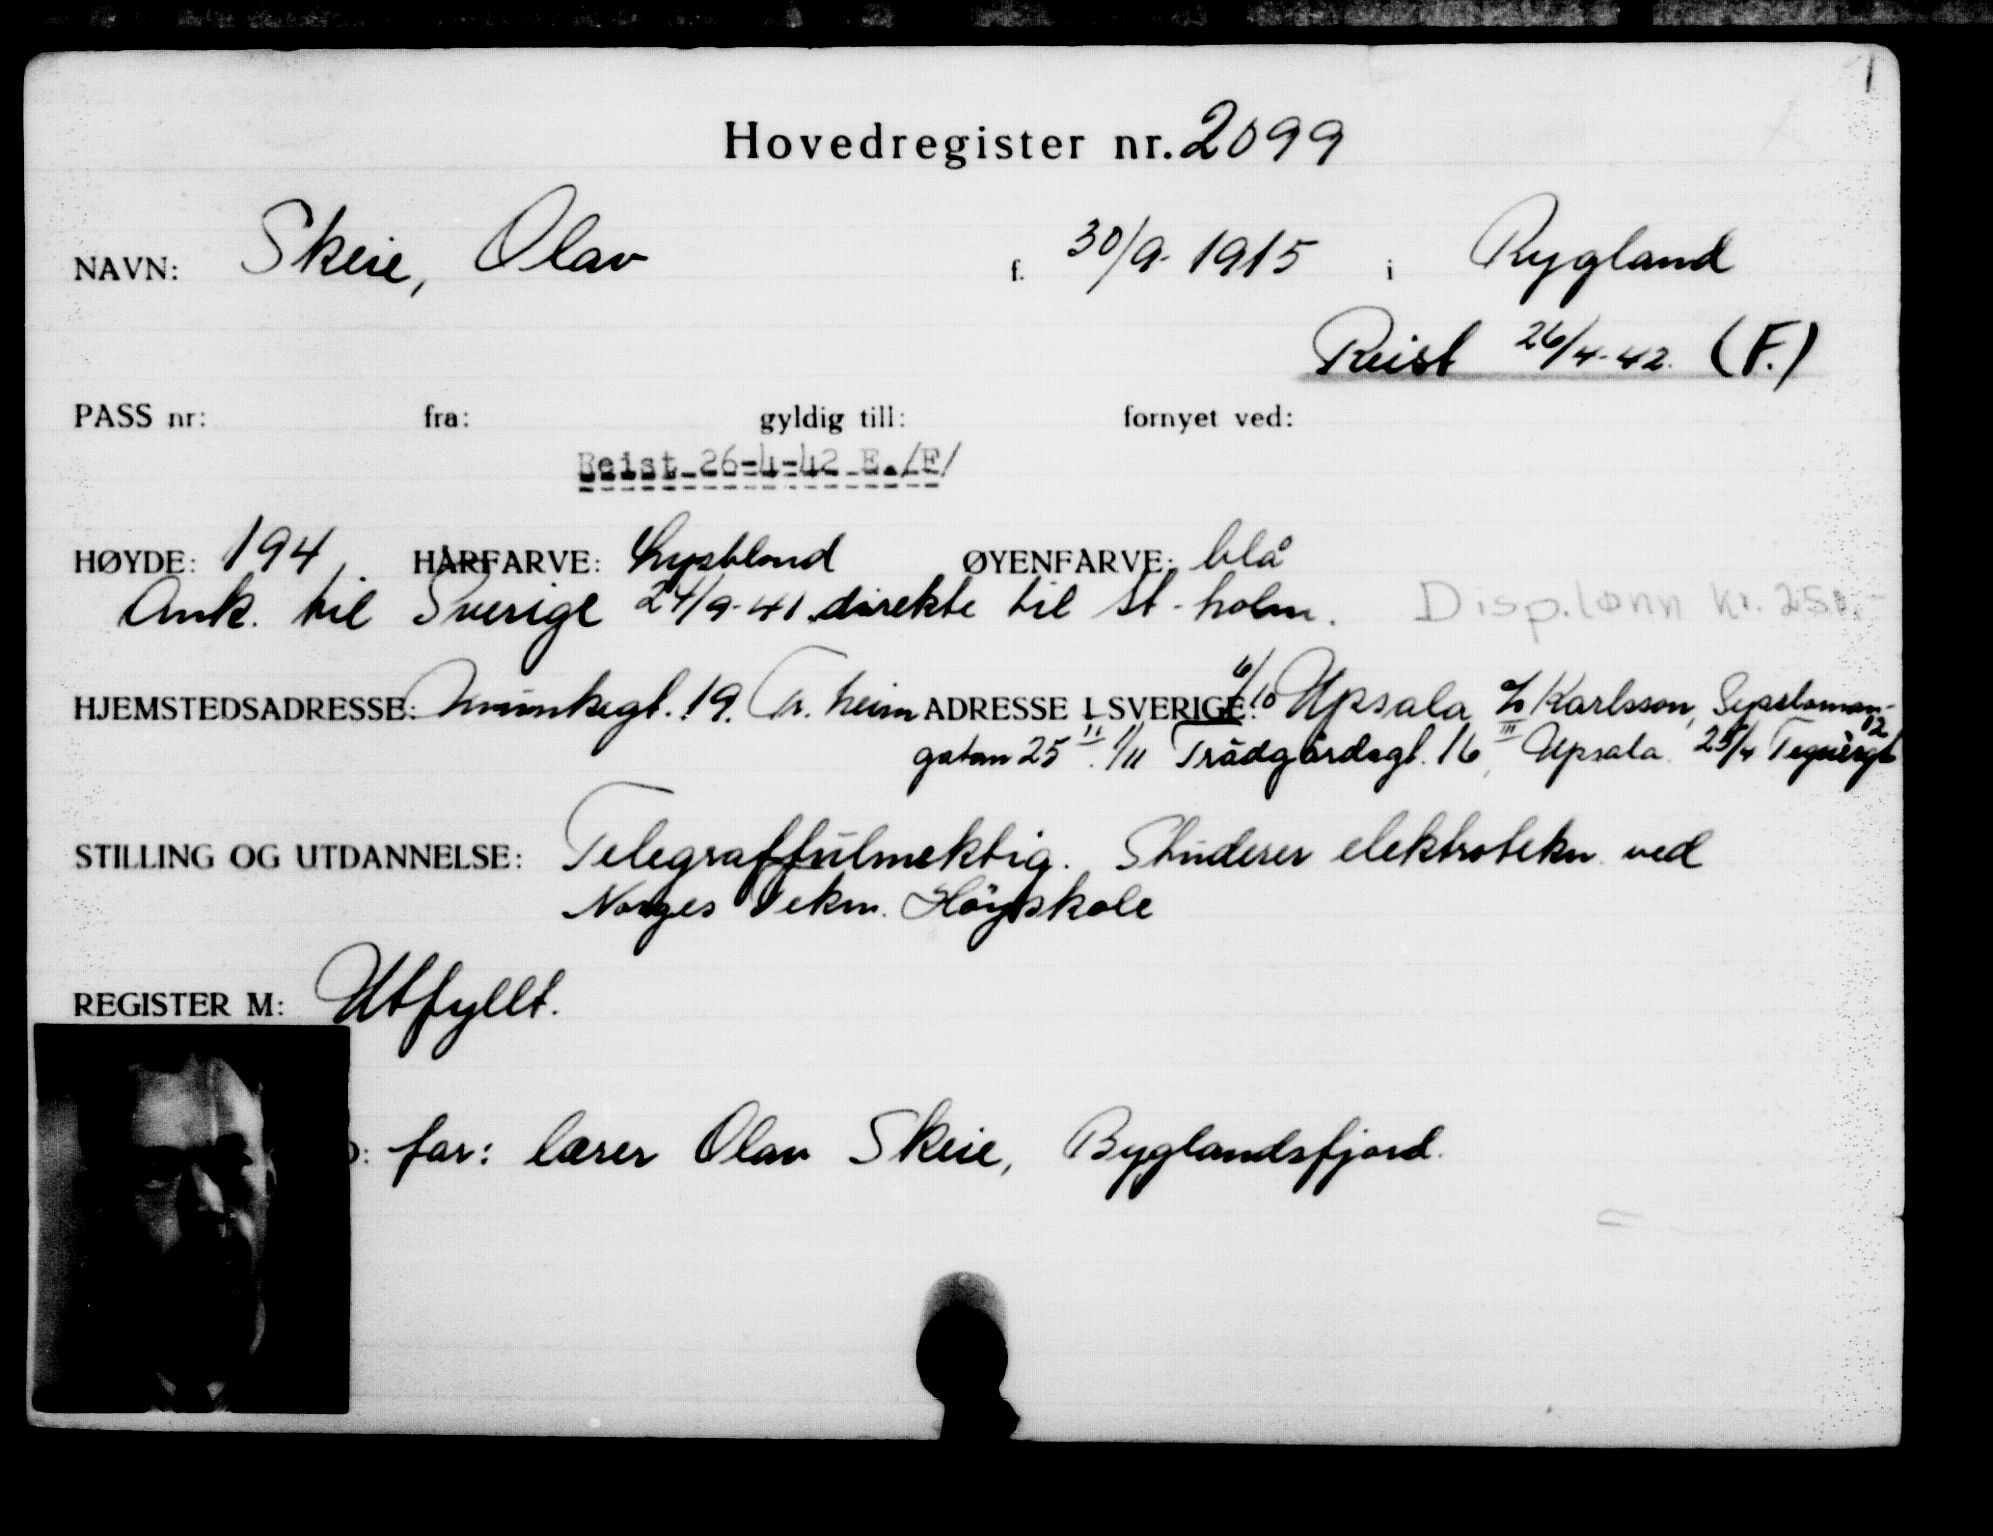 1
Hovedregister nr. 2099
NAVN: Skeie, Olav f. 30/9-1915 i Rygland
Reist 26/4-42. (F.)
PASS nr: fra: gyldig till: fornyet ved:
Reist 26-4-42 E./F/
HØYDE: 194 HÅRFARVE: Lysblond ØYENFARVE: blå
Ank. til Sverige 24/9-41 direkte til St-holm. Disp.lønn kr. 250.-
HJEMSTEDSADRESSE: Munkegt. 19. Tr.heim ADRESSE I SVERIGE: 6/10 Upsala c/o Karlsson, Syssloman-
gatan 25 II. 1/11 Trädgårdsgt. 16 III, Upsala. 25/4 Tegnèrgt 12
STILLING OG UTDANNELSE: Telegraffulmektig. Studerer elektrotekn. ved
Norges Tekn. Høyskole
REGISTER M: Utfyllt.
: far: lærer Olav Skeie, Byglandsfjord.